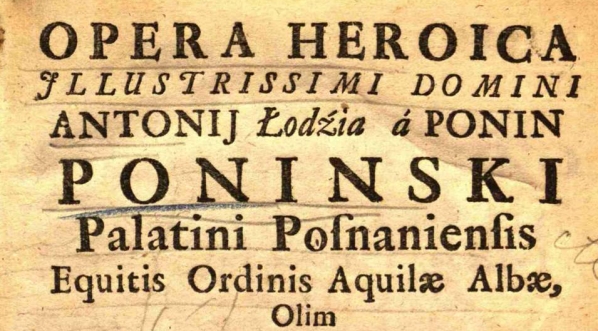 OPERA HEROICA
ILLUSTRISSIMI DOMINI
ANTONIJ Łodźia á PONIN
PONINSKI
Palatini Poſnanienſis
Equitis Ordinis Aquilæ Albæ,
Olim